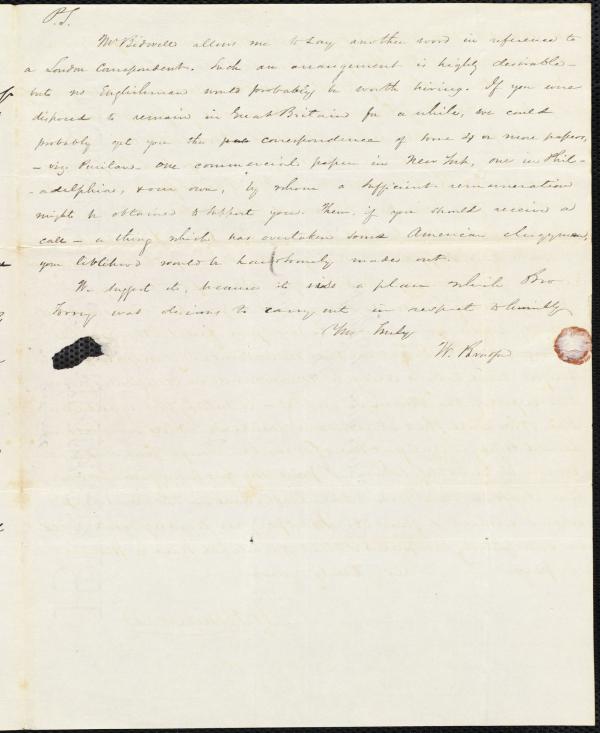 P.S.
Mr Bidwell allows me to say another word in reference to
a London Correspondent. Such an arrangement is highly desirable –
but no Englishman would probably be worth having. If you were
disposed to remain in Great Britain for a while, we could
probably get you the correspondence of some 4 or more papers,
– viz. Puritan – one commercial paper in New York, one in Phil-
-adelphia, & our own, by whom a sufficient remuneration
might be obtained to support you. Then, if you should receive a
call – a thing which has overtaken some American clergymen,
your livlihood would be handsomely made out.
We suggest it, because it is a plan which Bro
Torrey was desirous to carry out in respect to himself
Yrs truly
W.